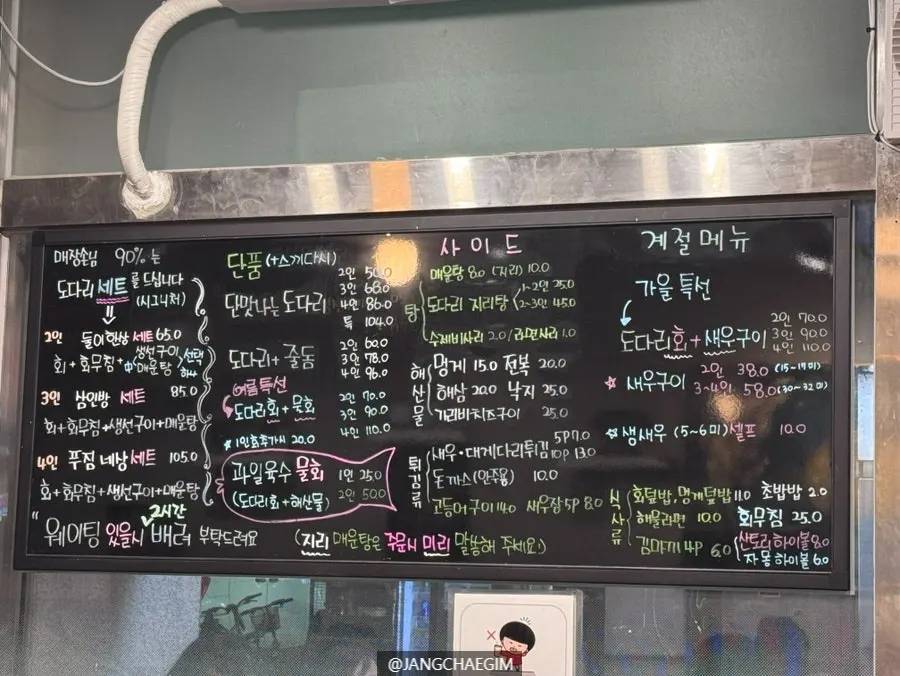 매장손님 90%는
도다리 세트를 드십니다
(시그니처)
2인 둘이한상 세트 65.0
회 + 회무침 + 생선구이 매운탕 中 선택 하나
3인 삼인방 세트 85.0
회+회무침+생선구이+매운탕
4인 푸짐네상세트 105.0
회+회무침+생선구이+매운탕
"웨이팅 있을시 2시간 배려 부탁드려요
단품 (+스끼다시)
단맛나는 도다리
2인 50.0
3인 68.0
4인 86.0
특 104.0
도다리 + 줄돔
2인 60.0
3인 78.0
4인 96.0
여름특선
도다리회 + 물회
2인 70.0
3인 90.0
4인 110.0
★1인 추가시 20.0
과일육수 물회 1인 25.0
(도다리회+해산물) 2인 50.0
(지리 매운탕은 주문시 미리 말씀해 주세요!)
사이드
탕
매운탕 8.0 (지리) 10.0
도다리 지리탕
1~2인 25.0
2~3인 45.0
수제비사리 2.0 / 라면사리 1.0
해산물
멍게 15.0 전복 20.0
해삼 20.0 낙지 25.0
가리비치즈구이 25.0
튀김류
새우·대게다리튀김 5P 7.0
10P 13.0
돈까스(안주용) 10.0
고등어구이 14.0 새우장 5P 8.0
계절메뉴
가을 특선
도다리회 + 새우구이
2인 70.0
3인 90.0
4인 110.0
☆ 새우구이 2인 38.0 (15~17미)
3~4인 58.0 (30~32미)
★ 생새우 (5~6미) 셀프 10.0
식사류
회덮밥, 멍게덮밥 11.0 초밥밥 2.0
해물라면 10.0 회무침 25.0
김마끼 4P 6.0
산토리하이볼 8.0
자몽하이볼 6.0
@JANGCHAEGIM